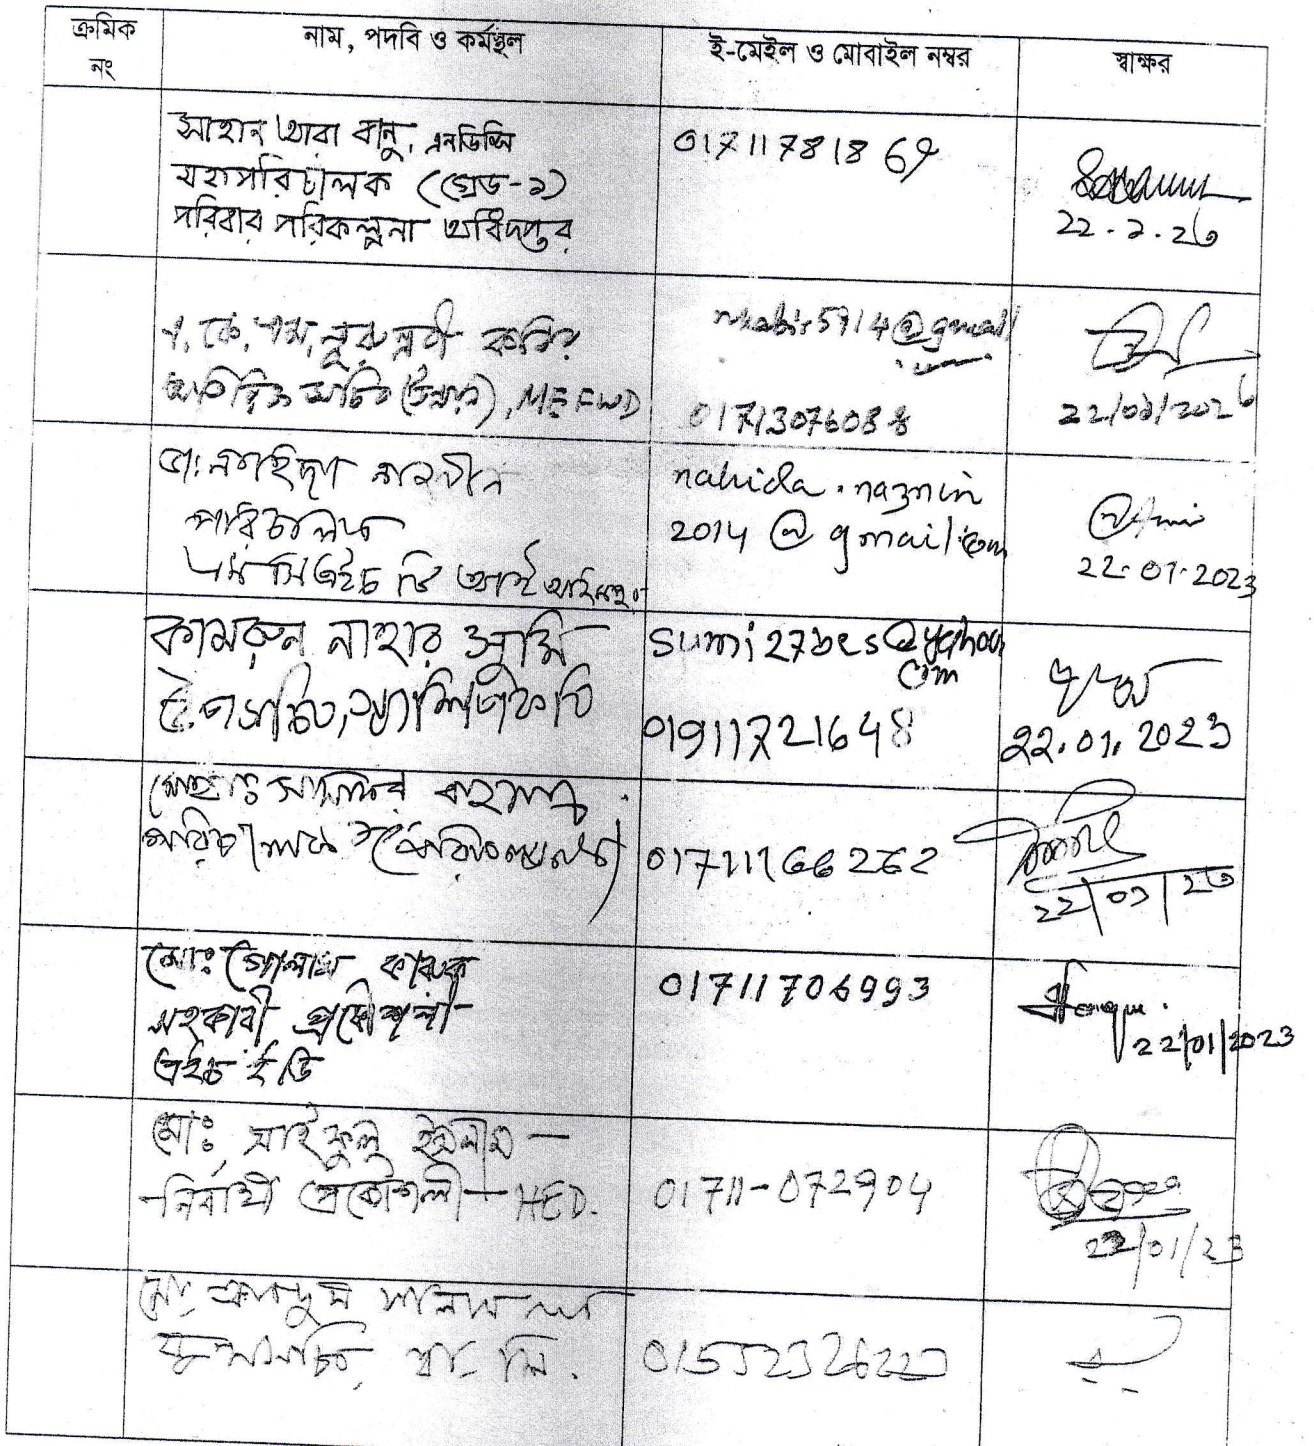 ক্রমিক নং
নাম, পদবি ও কর্মস্থল
ই-মেইল ও মোবাইল নম্বর
স্বাক্ষর
সাহান আরা বানু, এনডিসি
মহাপরিচালক (গ্রেড-১)
পরিবার পরিকল্পনা অধিদপ্তর
01711781869
22.1.23
এ, কে, এম, নুরুন্নবী কবির
অতিরিক্ত সচিব (উন্নয়ন), MEFWD
nkabir5914@gmail
01713076088
22/01/2023
ডা: নাহিদা নাজনীন
পরিচালক
nahida.naznin
2014@gmail.com
22.01.2023
কামরুন নাহার সুমি
sumi27bcs@yahoo.com
01911721648
22.01.2023
01711166262
22/01/23
মো: গোলাম ফারুক
সহকারী প্রকৌশলী
এইচ ই ডি
01711706993
22/01/2023
মোঃ সাইফুল ইসলাম
নির্বাহী প্রকৌশলী - HED.
01711-072904
22/01/23